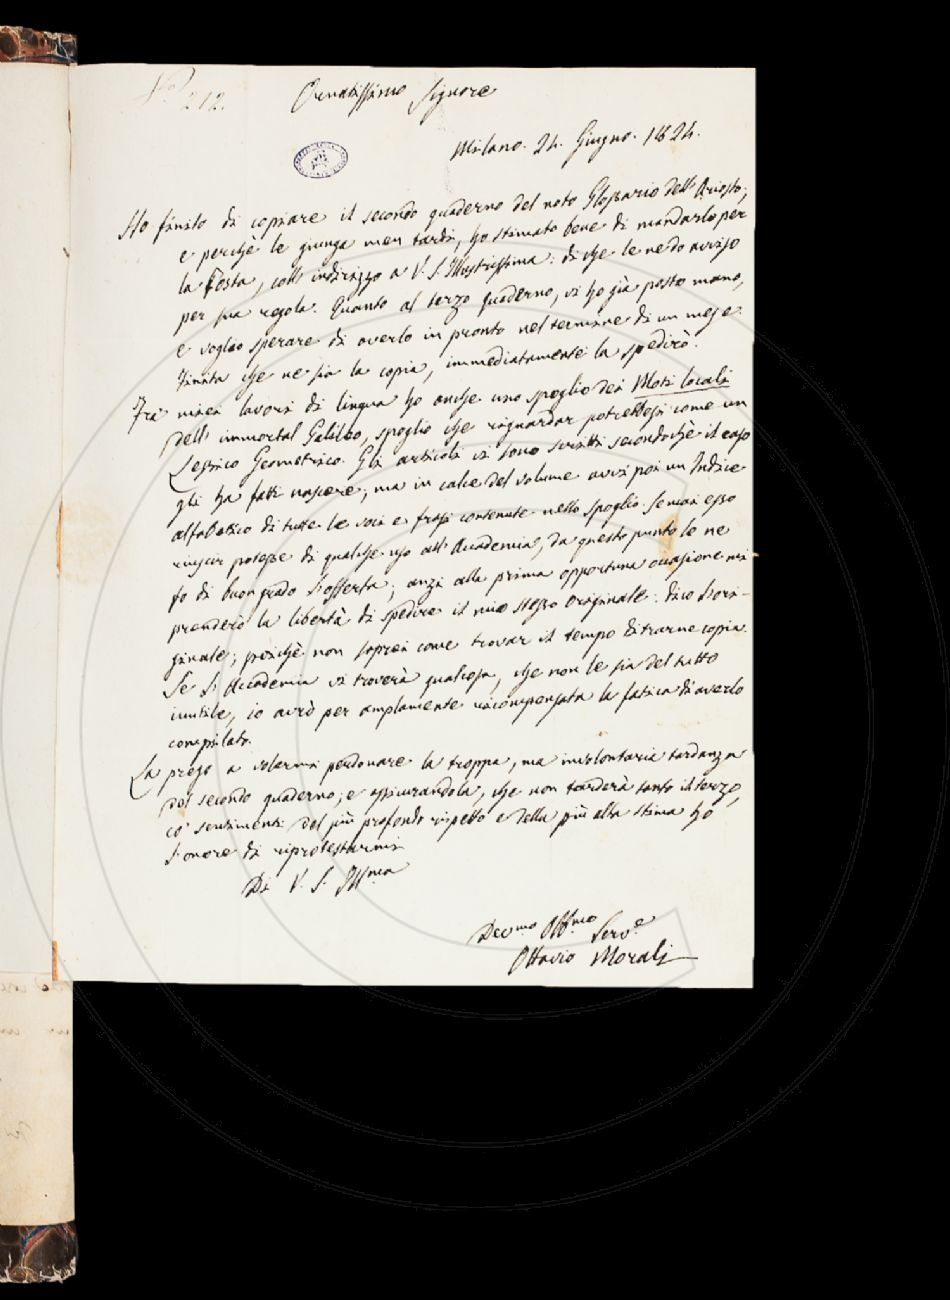 N.º 212.
Ornatissimo Signore
Milano. 24. Giugno. 1824.
Ho finito di copiare il secondo quaderno del noto Glossario dell'Ariosto;
e perchè le giunga men tardi, ho stimato bene di mandarlo per
la Posta, coll'indirizzo a V. S. Illustrissima: di che le ne do avviso
per sua regola. Quanto al terzo quaderno, vi ho già posto mano,
e voglio sperare di averlo in pronto nel termine di un mese.
Finita che ne sia la copia, immediatamente la spedirò.
Fra' miei lavori di lingua ho anche uno spoglio dei Moti locali
dell'immortal Galileo, spoglio che risguardar potrebbesi come un
Lessico Geometrico. Gli articoli vi sono scritti secondochè il caso
gli ha fatti nascere; ma in calce del volume avvi poi un Indice
alfabetico di tutte le voci e frasi contenute nello spoglio. Se mai esso
riuscir potesse di qualche uso all'Accademia, da questo punto le ne
fo di buon grado l'offerta; anzi alla prima opportuna occasione mi
prenderò la libertà di spedire il mio stesso originale: dico l'ori-
ginale; poichè non saprei come trovar il tempo di trarne copia.
Se l'Accademia vi troverà qualcosa, che non le sia del tutto
inutile, io avrò per ampiamente ricompensata la fatica di averlo
compilato.
La prego a volermi perdonare la troppa, ma involontaria tardanza
del secondo quaderno; e assicurandola, che non tarderà tanto il terzo,
co' sentimenti del più profondo rispetto e della più alta stima ho
l'onore di riprotestarmi
Di V. S. Ill.ma
Dev.mo Obb.mo Serv.e
Ottavio Morali